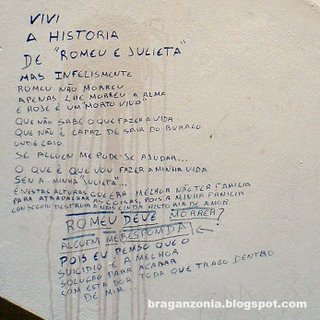 VIVI
A HISTORIA
DE "ROMEU E JULIETA"
MAS INFELISMENTE
ROMEU NÃO MORREU
APENAS LHE MORREU A ALMA
E HOJE É UM "MORTO VIVO"
QUE NÃO SABE O QUE FAZER A VIDA
QUE NÃO É CAPAZ DE SAIR DO BURACO
ONDE CAIO.
SE ALGUEM ME PODE-SE AJUDAR...
O QUE É QUE VOU FAZER A MINHA VIDA
SEM A MINHA "JULIETA"...
É NESTAS ALTURAS QUE ERA MELHOR NÃO TER FAMILIA
PARA ATRAPALHAR AS COISAS, POIS A MINHA FAMILIA
CONSEGUIO DESTRUIR A MAIS LINDA HISTORIA DE AMOR
ROMEU DEVE MORRER?
ALGUEM ME RESPONDA
POIS EU PENSO QUE O
SUICIDIO É A MELHOR
SOLUÇÃO PARA ACABAR
COM ESTA DOR TODA QUE TRAGO DENTRO
DE MIM...
braganzonia.blogspot.com